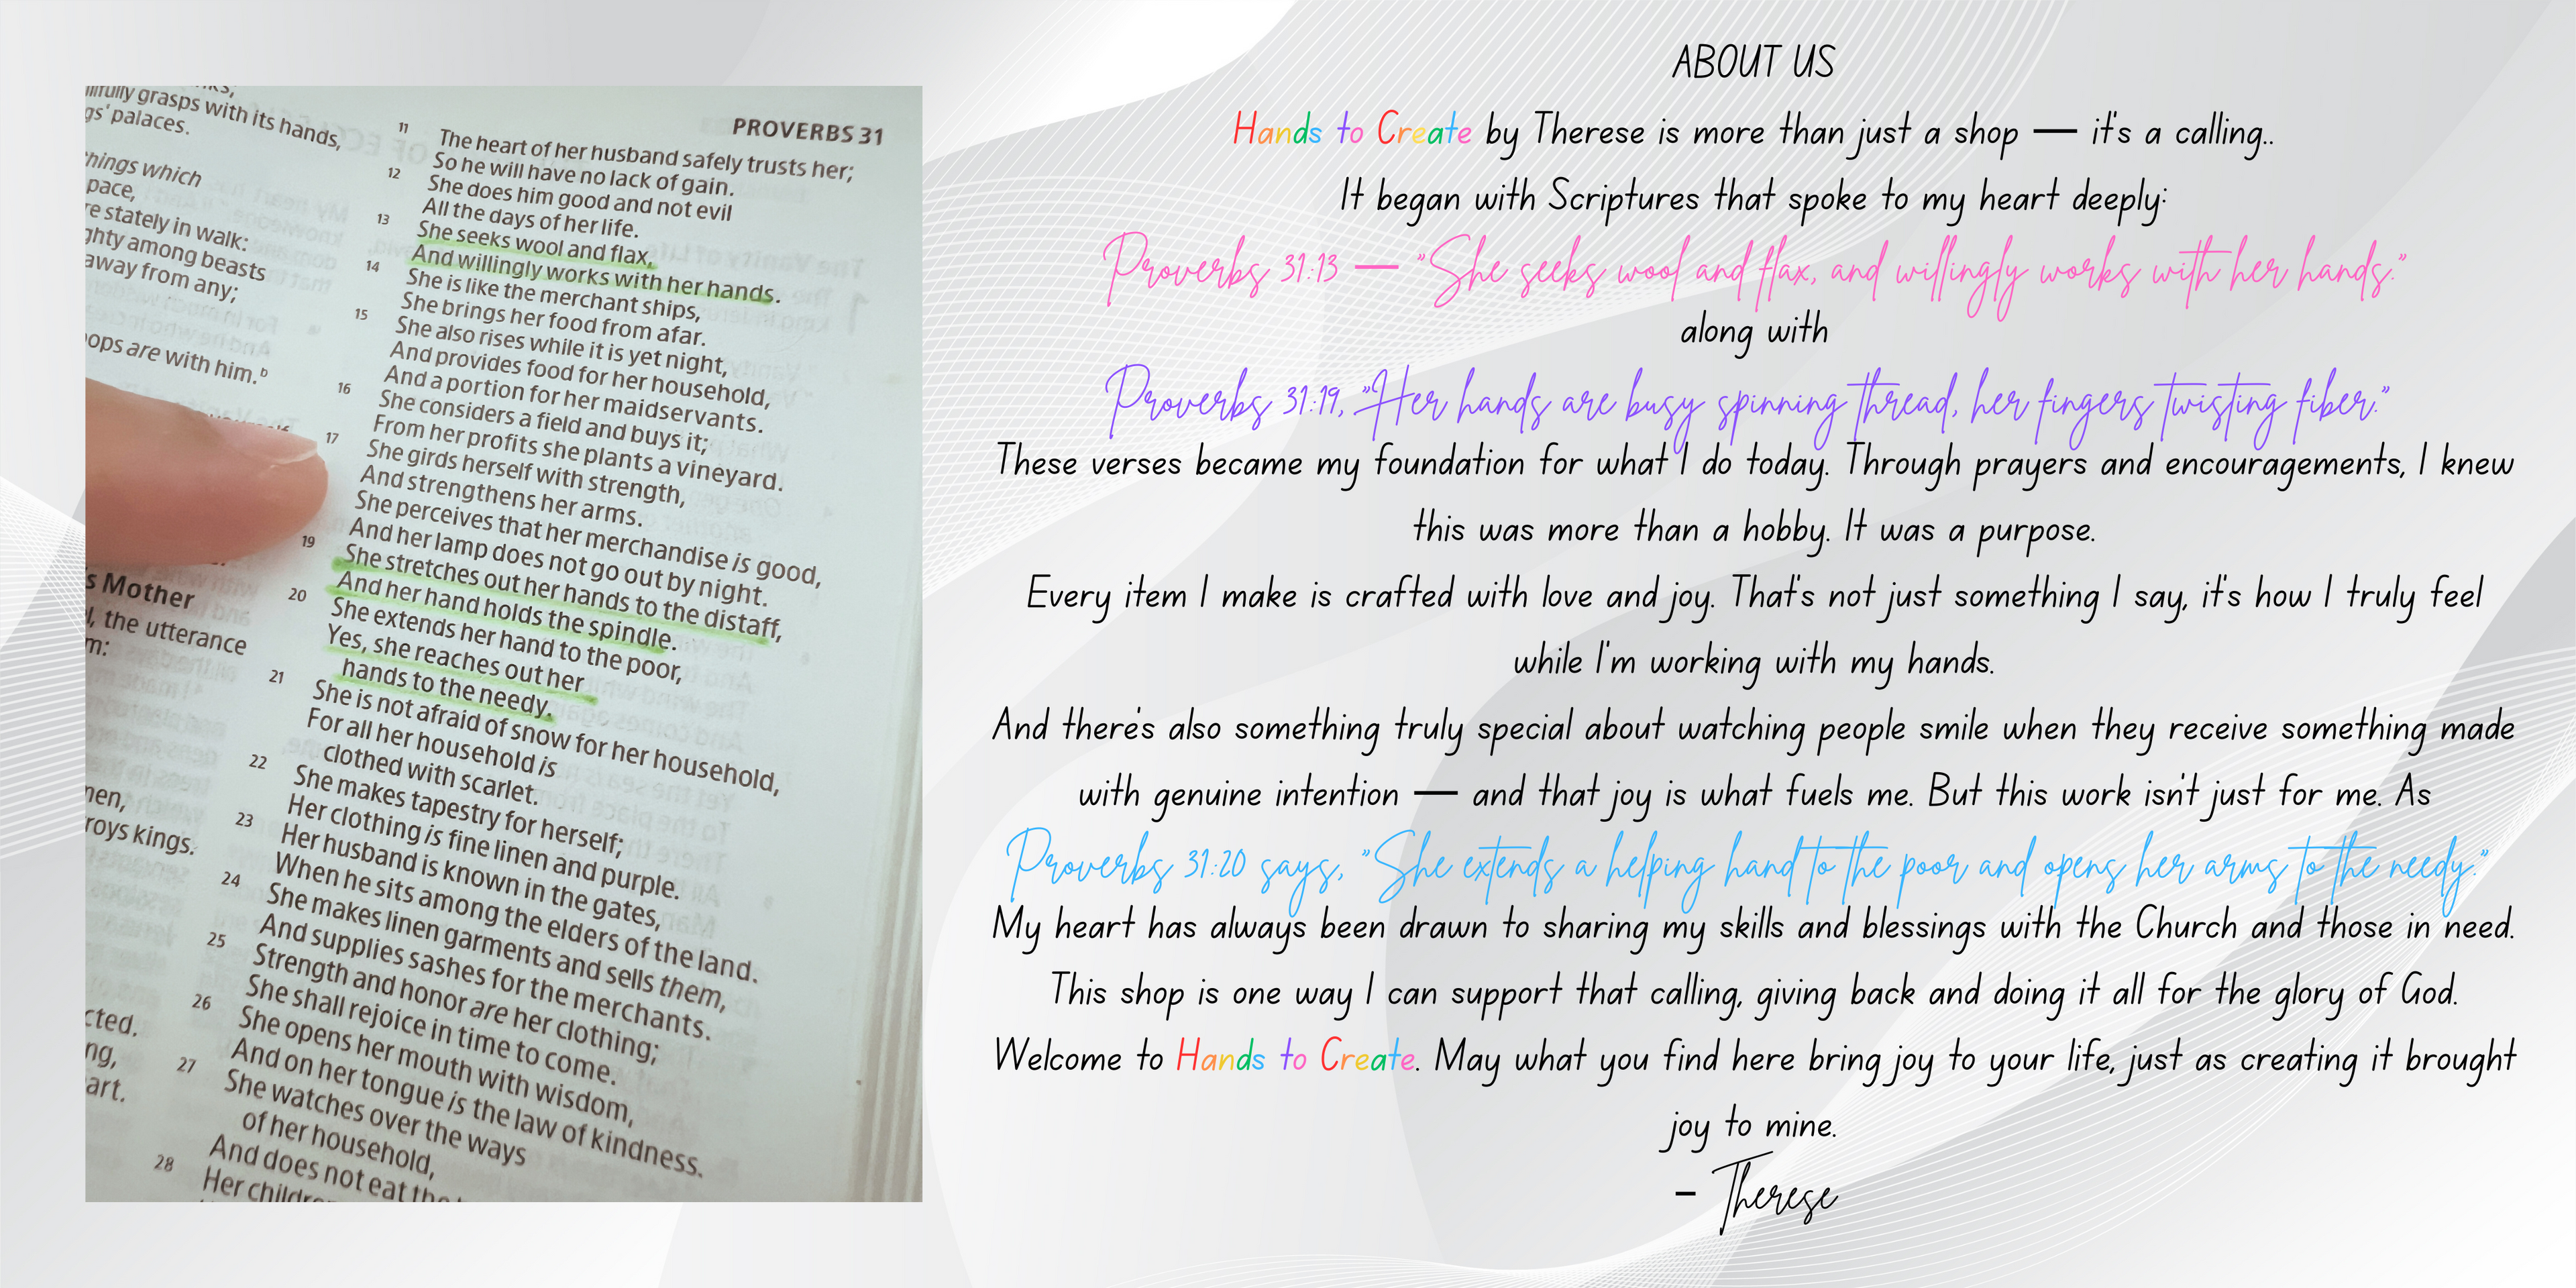 llfully grasps with its hands,
gs' palaces.
things which
pace,
re stately in walk:
ghty among beasts
away from any;
oops are with him.ᵇ
s Mother
l, the utterance
m:
men,
roys kings.
cted.
ng,
art.
PROVERBS 31
11 The heart of her husband safely trusts her;
So he will have no lack of gain.
12 She does him good and not evil
All the days of her life.
13 She seeks wool and flax,
And willingly works with her hands.
14 She is like the merchant ships,
She brings her food from afar.
15 She also rises while it is yet night,
And provides food for her household,
And a portion for her maidservants.
16 She considers a field and buys it;
From her profits she plants a vineyard.
17 She girds herself with strength,
And strengthens her arms.
She perceives that her merchandise is good,
And her lamp does not go out by night.
19 She stretches out her hands to the distaff,
And her hand holds the spindle.
20 She extends her hand to the poor,
Yes, she reaches out her
hands to the needy.
21 She is not afraid of snow for her household,
For all her household is
clothed with scarlet.
22 She makes tapestry for herself;
Her clothing is fine linen and purple.
23 Her husband is known in the gates,
When he sits among the elders of the land.
24 She makes linen garments and sells them,
And supplies sashes for the merchants.
25 Strength and honor are her clothing;
She shall rejoice in time to come.
26 She opens her mouth with wisdom,
And on her tongue is the law of kindness.
27 She watches over the ways
of her household,
And does not eat the
28 Her childre
ABOUT US
Hands to Create by Therese is more than just a shop — it's a calling..
It began with Scriptures that spoke to my heart deeply:
Proverbs 31:13 — "She seeks wool and flax, and willingly works with her hands."
along with
Proverbs 31:19, "Her hands are busy spinning thread, her fingers twisting fiber."
These verses became my foundation for what I do today. Through prayers and encouragements, I knew
this was more than a hobby. It was a purpose.
Every item I make is crafted with love and joy. That's not just something I say, it's how I truly feel
while I'm working with my hands.
And there's also something truly special about watching people smile when they receive something made
with genuine intention — and that joy is what fuels me. But this work isn't just for me. As
Proverbs 31:20 says, "She extends a helping hand to the poor and opens her arms to the needy."
My heart has always been drawn to sharing my skills and blessings with the Church and those in need.
This shop is one way I can support that calling, giving back and doing it all for the glory of God.
Welcome to Hands to Create. May what you find here bring joy to your life, just as creating it brought
joy to mine.
- Therese